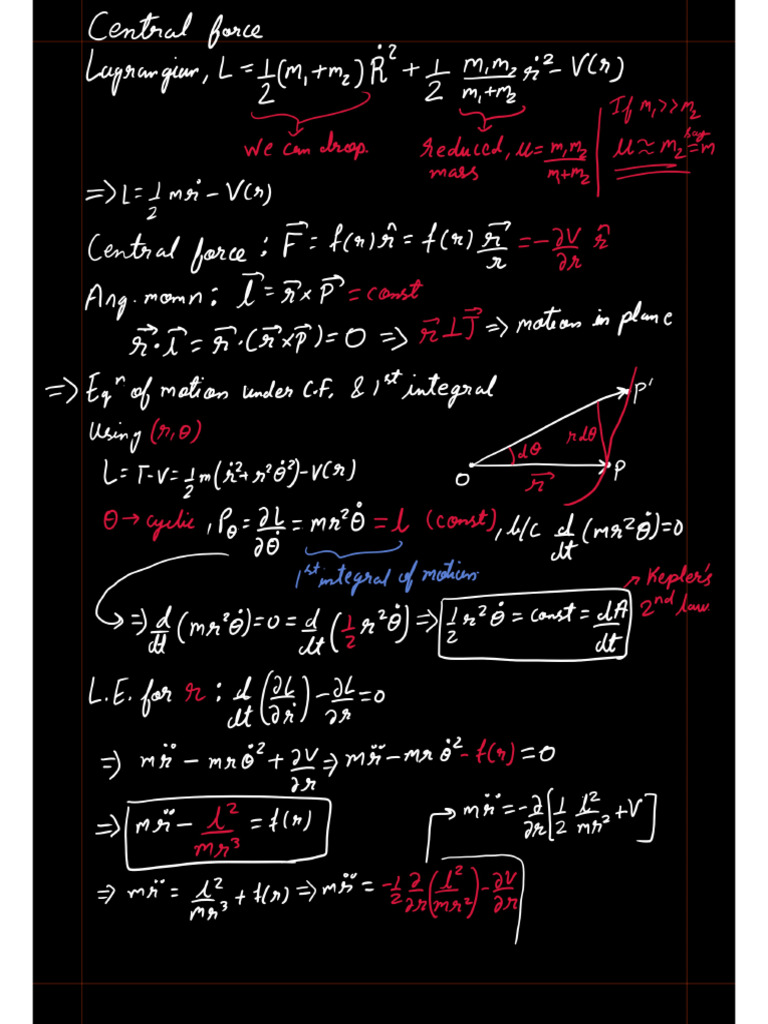 Central force
Lagrangian, L = 1/2 (m₁+m₂) Ṙ² + 1/2 m₁m₂/(m₁+m₂) ṙ² − V(r)
We can drop.
reduced mass, μ = m₁m₂/(m+m₂)
If m₁>>m₂
μ ≈ m₂ say = m
=> L = 1/2 mṙ − V(r)
Central force : F⃗ = f(r) r̂ = f(r) r⃗/r = −∂V/∂r r̂
Ang. momn : l⃗ = r⃗ × P⃗ = const
r⃗·l⃗ = r⃗·(r⃗×p⃗) = 0 => r⃗ ⊥ J⃗ => motion in plane
=> Eqⁿ of motion under C.F. & 1st integral
Using (r,θ)
P'
dθ
rdθ
O
r⃗
P
L = T−V = 1/2 m(ṙ²+r²θ̇²)−V(r)
θ → cyclic, Pθ = ∂L/∂θ̇ = mr²θ̇ = l (const), b/c d/dt (mr²θ̇)=0
1st integral of motion
=> d/dt (mr²θ̇) = 0 = d/dt (1/2 r²θ̇) => 1/2 r²θ̇ = const = dA/dt
→ Kepler's 2nd law
L.E. for r : d/dt (∂L/∂ṙ) − ∂L/∂r = 0
=> mr̈ − mrθ̇² + ∂V/∂r => mr̈ − mrθ̇² − f(r) = 0
=> mr̈ − l²/mr³ = f(r)
→ mr̈ = −∂/∂r [1/2 l²/mr² + V]
=> mr̈ = l²/mr³ + f(r) => mr̈ = −1/2 ∂/∂r (l²/mr²) − ∂V/∂r